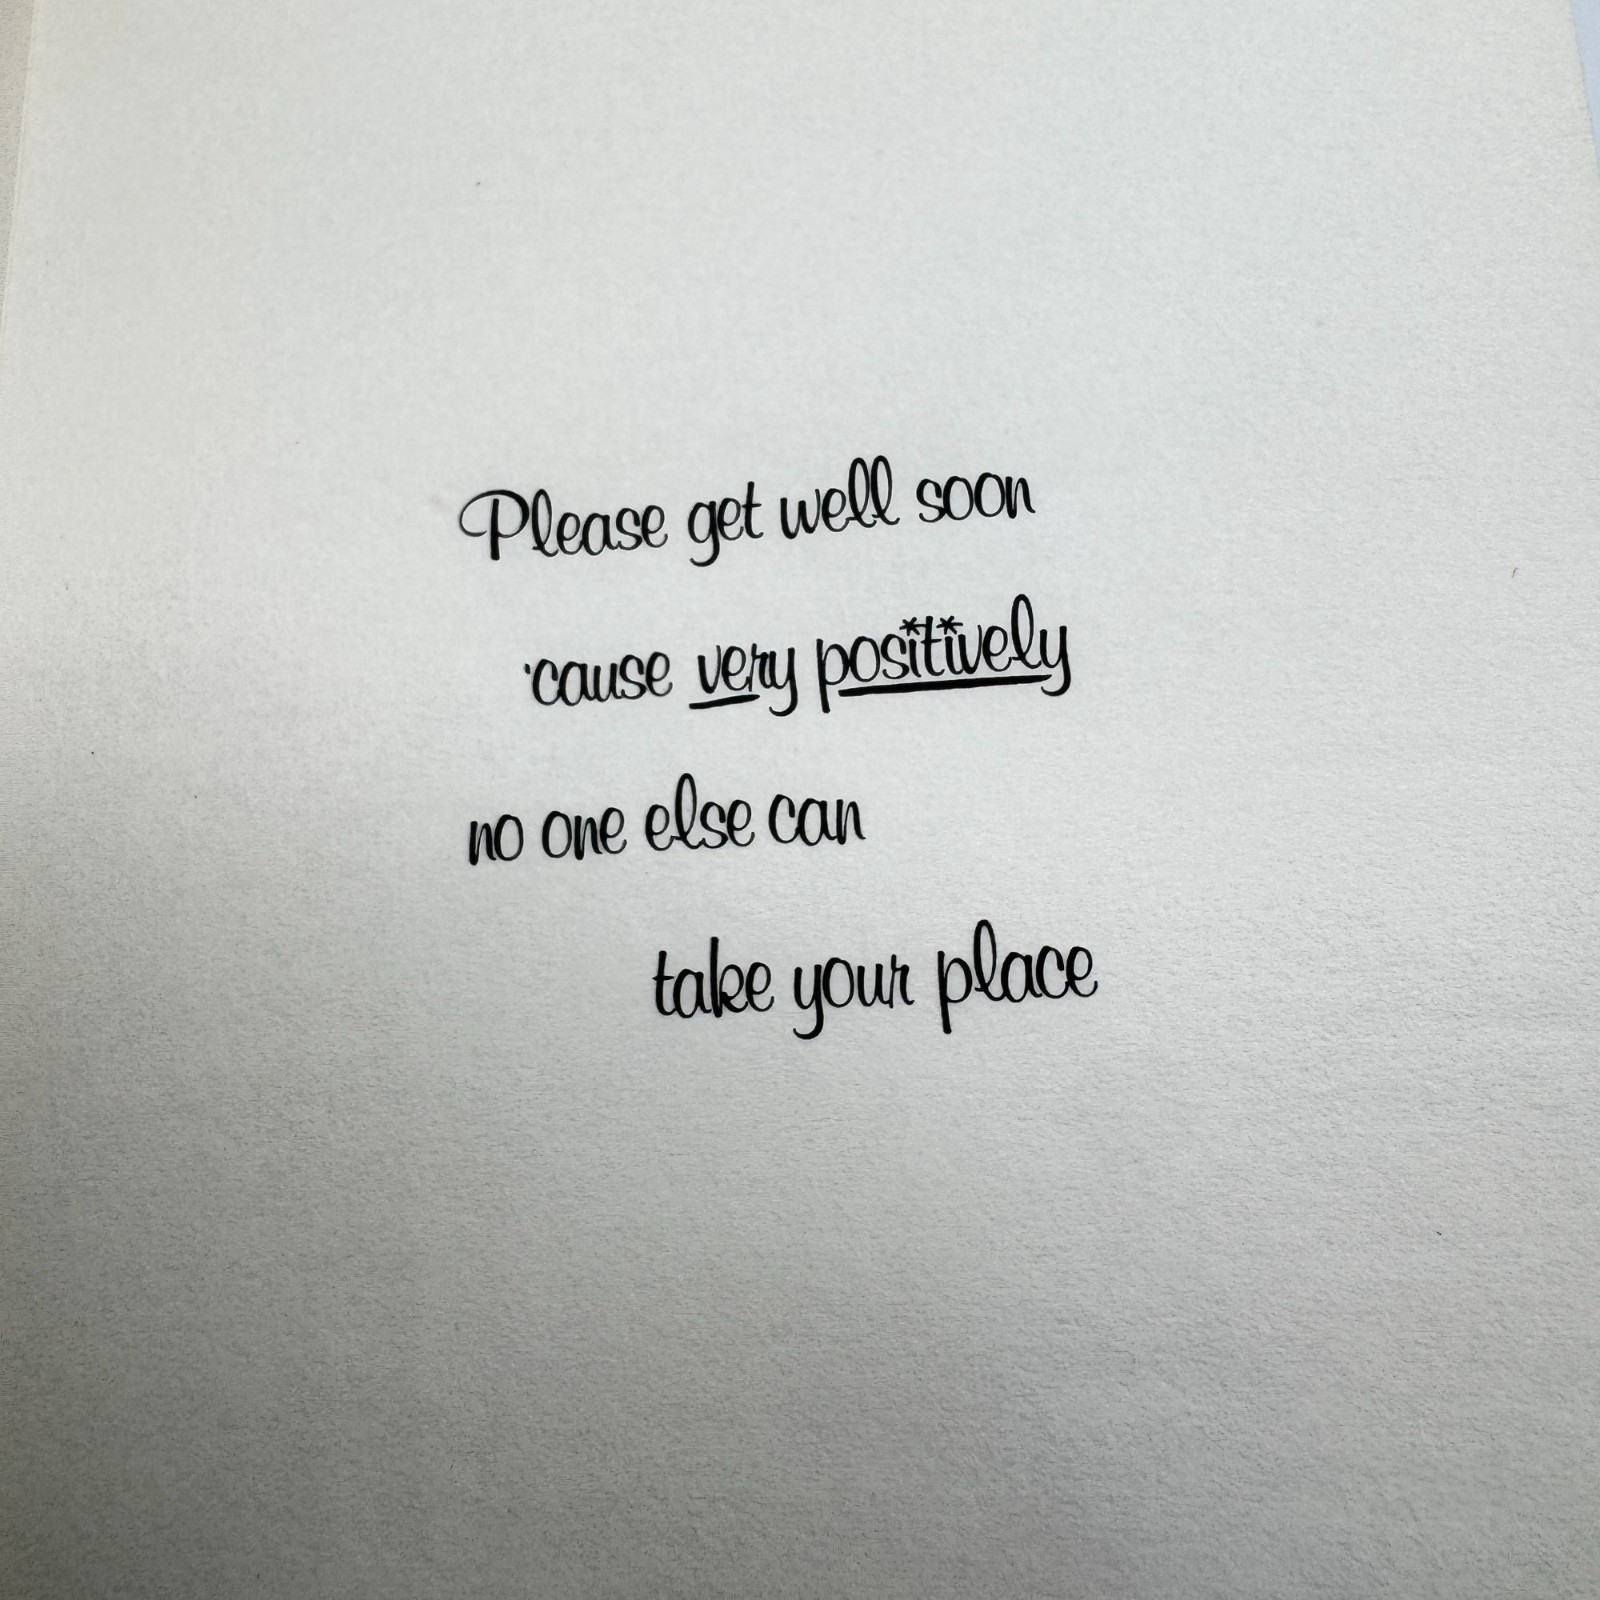 Please get well soon
'cause very positively
no one else can
take your place